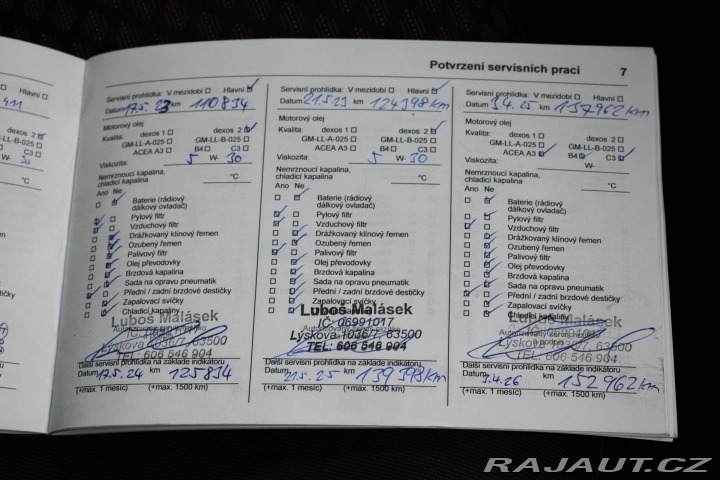 Potvrzení servisních prací 7
Servisní prohlídka: V mezidobí Hlavní
Datum 17.5.23 km 110834
Motorový olej
Kvalita: dexos 1 dexos 2
GM-LL-A-025 GM-LL-B-025
ACEA A3 B4 C3
Viskozita: 5 W- 30
Nemrznoucí kapalina, chladicí kapalina °C
Ano Ne
Baterie (rádiový
dálkový ovladač)
Pylový filtr
Vzduchový filtr
Drážkovaný klínový řemen
Ozubený řemen
Palivový filtr
Olej převodovky
Brzdová kapalina
Sada na opravu pneumatik
Přední / zadní brzdové destičky
Zapalovací svíčky
Chladicí kapaliny
Luboš Malásek
Lyskova 1036/1, 63500
TEL: 606 546 904
Další servisní prohlídka na základě indikátoru
Datum 17.5.24 125834
(+max. 1 měsíc) (+max. 1500 km)
Servisní prohlídka: V mezidobí Hlavní
Datum 21.5.23 km 124398km
Motorový olej
Kvalita: dexos 1 dexos 2
GM-LL-A-025 GM-LL-B-025
ACEA A3 B4 C3
Viskozita: 5 W- 30
Nemrznoucí kapalina,
chladicí kapalina °C
Ano Ne
Baterie (rádiový
dálkový ovladač)
Pylový filtr
Vzduchový filtr
Drážkovaný klínový řemen
Ozubený řemen
Palivový filtr
Olej převodovky
Brzdová kapalina
Sada na opravu pneumatik
Přední / zadní brzdové destičky
Zapalovací svíčky
Luboš Malásek
IČ: 06991017
Lyskova 1036/1, 63500
TEL: 606 546 904
Další servisní prohlídka na základě indikátoru
Datum 21.5.25 139398km
(+max. 1 měsíc) (+max. 1500 km)
Servisní prohlídka: V mezidobí Hlavní
Datum 3.4.25 km 137962km
Motorový olej
Kvalita: dexos 1 dexos 2
GM-LL-A-025 GM-LL-B-025
ACEA A3 B4 C3
Viskozita: W-
Nemrznoucí kapalina,
chladicí kapalina °C
Ano Ne
Baterie (rádiový
dálkový ovladač)
Pylový filtr
Vzduchový filtr
Drážkovaný klínový řemen
Ozubený řemen
Palivový filtr
Olej převodovky
Brzdová kapalina
Sada na opravu pneumatik
Přední / zadní brzdové destičky
Zapalovací svíčky
Chladicí kapaliny
Luboš Malásek
TEL: 606 546 904
Další servisní prohlídka na základě indikátoru
Datum 3.4.26 152962km
(+max. 1 měsíc) (+max. 1500 km)
RAJAUT.CZ